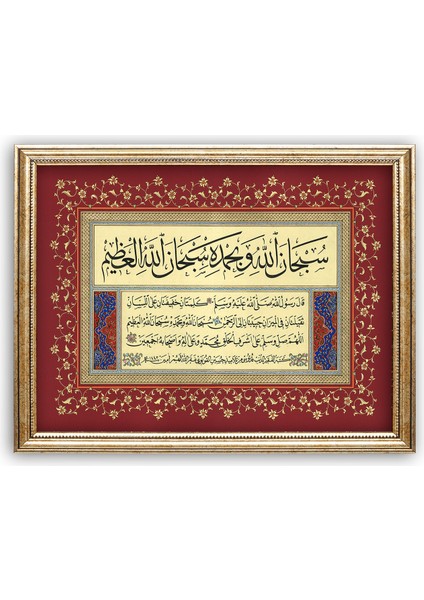 سُبْحَانَ اللهِ وَبِحَمْدِهِ سُبْحَانَ اللهِ الْعَظِيمِ
قَالَ رَسُولُ اللهِ صَلَّى اللهُ عَلَيْهِ وَسَلَّمَ كَلِمَتَانِ خَفِيفَتَانِ عَلَى اللِّسَانِ
ثَقِيلَتَانِ فِي الْمِيزَانِ حَبِيبَتَانِ إِلَى الرَّحْمٰنِ سُبْحَانَ اللهِ وَبِحَمْدِهِ سُبْحَانَ اللهِ الْعَظِيمِ
اللّٰهُمَّ صَلِّ وَسَلِّمْ عَلَى أَشْرَفِ الْخَلْقِ مُحَمَّدٍ وَعَلَى آلِهِ وَأَصْحَابِهِ أَجْمَعِينَ